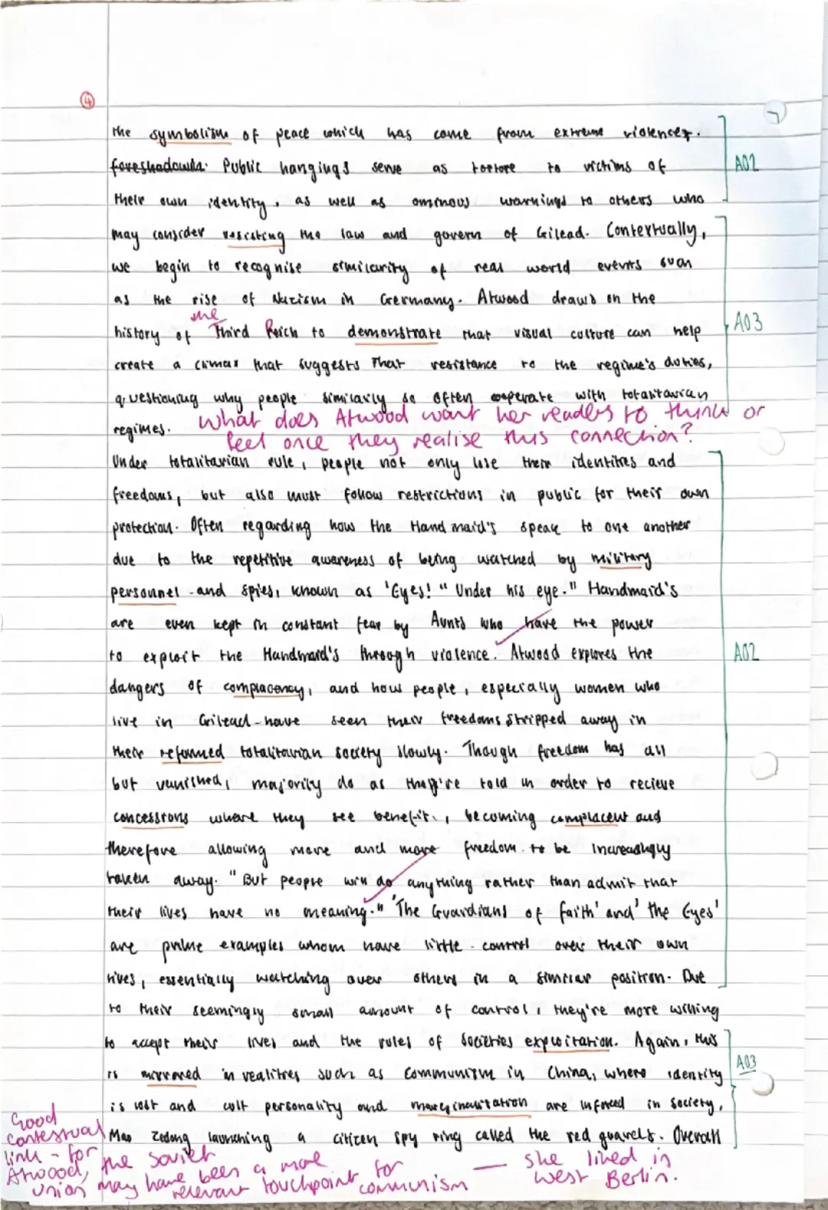 ④
the symbolism of peace which has come from extreme violence.
foreshadows. Public hangings serve as torture to victims of
AO2
their own identity, as well as ominous warnings to others who
may consider resisting the law and govern of Gilead. Contextually,
we begin to recognise similarity of real world events such
as the rise of Nazism in Germany. Atwood draws on the
the
history of Third Reich to demonstrate that visual culture can help
AO3
create a climax that suggests that resistance to the regime's duties,
questioning why people similarly so often cooperate with totalitarian
regimes. What does Atwood want her readers to think or
feel once they realise this connection?
Under totalitarian rule, people not only lose their identites and
freedoms, but also must follow restrictions in public for their own
protection. Often regarding how the Handmaid's speak to one another
due to the repetitive awareness of being watched by military
personnel and spies, known as 'Eyes! "Under his eye." Handmaid's
are even kept in constant fear by Aunts who have the power
to exploit the Handmaid's through violence. Atwood explores the
AO2
dangers of complacency, and how people, especially women who
live in Gilead-have seen their freedoms stripped away in
their reformed totalitarian society slowly. Though freedom has all
but vanished, majority do as they're told in order to recieve
concessions where they see benefit, becoming complacent and
therefore allowing more and more freedom to be increasingly
taken away. "But people will do anything rather than admit that
their lives have no meaning." 'The Guardians of faith' and 'the Eyes'
are prime examples whom have little control over their own
lives, essentially watching over others in a similar position. Due
to their seemingly small amount of control, they're more willing
to accept their lives and the rules of societies exploitation. Again, this
is mirrored in realities such as communism in China, where identity
AO3
is lost and cult personality and marginalisation are in society,
Mao Zedong launching a citizen spy ring called the red guards. Overall
Good
contextual
link - for
Atwood, the Soviet
union may have been a more
relevant touchpoint for
communism — she lived in
West Berlin.